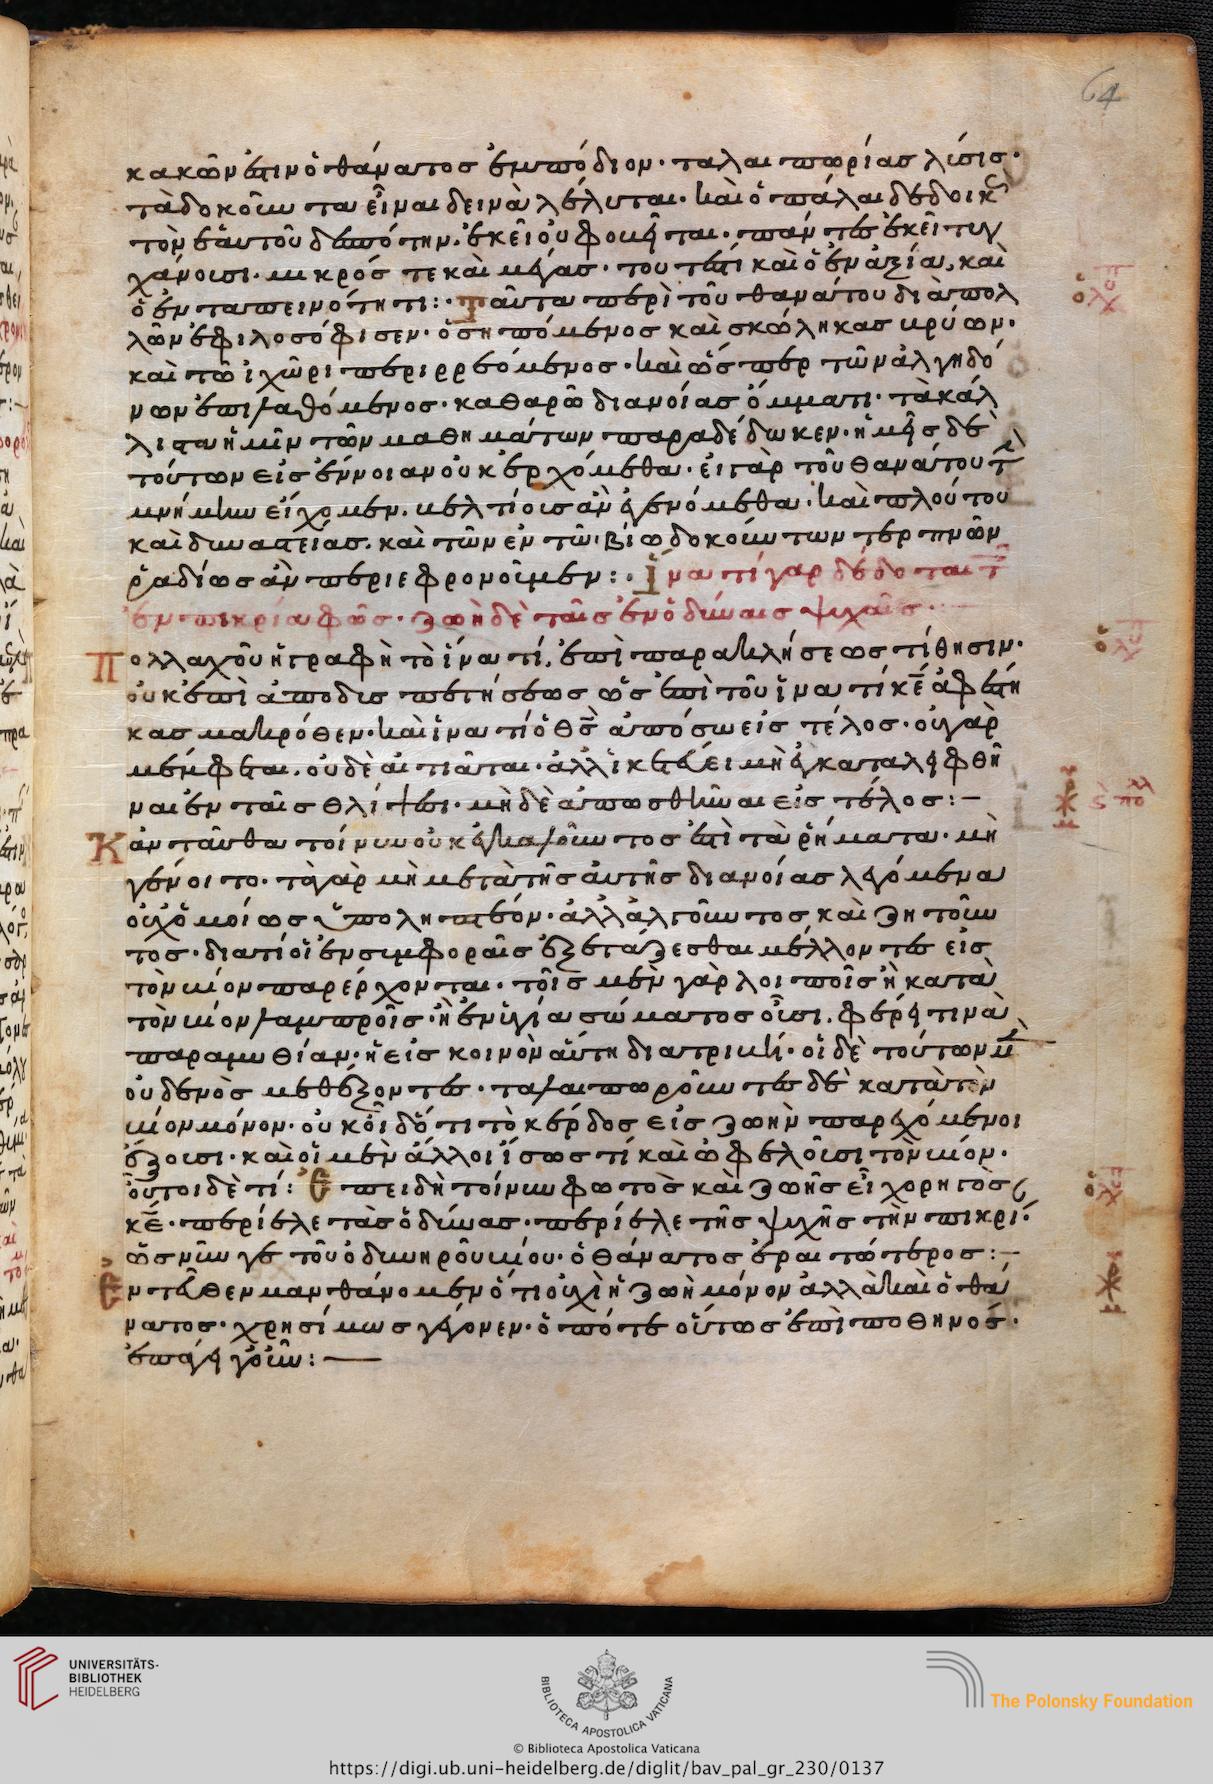 64
κακῶν ἐστιν ὁ θάνατος ἐμπόδιον· ταλαιπωρίας λύσις·
τὰ δοκοῦντα εἶναι δεινὰ λέλυται· καὶ ὁ πάλαι δεδοικ
τὸν ἑαυτοῦ δεσπότην. ἐκεῖ οὐ φοβεῖται· πάντες ἐκεῖ τυγ
χάνουσι. μικρός τε καὶ μέγας· τουτέστι καὶ ὁ ἐν ἀξία, καὶ
ὁ ἐν ταπεινότητι:· Ταῦτα περὶ τοῦ θανάτου διὰ πολ
λῶν ἐφιλοσόφισεν· ὁ σηπόμενος καὶ σκώληκας βρύων·
καὶ τῶ ἰχῶρι περιρρεόμενος· καὶ ὥσπερ τῶν ἀλγηδό
νων ἐπιλαθόμενος· καθαρῶ διανοίας ὄμματι· τὰ κάλ
λιστα ἡμῖν τῶν μαθημάτων παραδέδωκεν· ἡμεῖς δὲ
τούτων εἰς ἔννοιαν οὐκ ἐρχόμεθα· εἰ γὰρ τοῦ θανάτου τ
μνήμην εἴχομεν. βελτίοις ἂν ἐγενόμεθα· καὶ πλούτου
καὶ δυναστείας. καὶ τῶν ἐν τῶ βίω δοκούντων τερπνῶν
ῥαδίως ἂν περιεφρονοῦμεν:· Ἵνα τί γαρ δέδοται τ
ἐν πικρία φῶς· ζωὴ δὲ ταῖς ἐν ὀδύναις ψυχαῖς·
Πολλαχοῦ ἡ γραφὴ τὸ ἵνα τί, ἐπὶ παρακλήσεως τίθησιν·
οὐκ ἐπὶ ἀποδυσπετήσεως ὡς ἐπὶ τοῦ ἵνα τί κε ἀφέστη
κας μακρόθεν· καὶ ἵνα τί ὁ θς ἀπόσω εἰς τέλος· οὐ γὰρ
μέμφεται. οὐδὲ αἰτιᾶται· ἀλλ' ἱκετεύει μὴ ἐγκαταλειφθῆ
ναι ἐν ταῖς θλίψεσι· μὴ δὲ ἀπωσθῆναι εἰς τέλος:–
Κἀνταῦθα τοίνυν οὐκ ἐγκαλοῦντος ἐστὶ τὰ ῥήματα· μὴ
γένοιτο· τὰ γὰρ μὴ μετὰ τῆς αὐτῆς διανοίας λεγόμενα
οὐχ ὁμοίως ὑποληπτέον· ἀλλ' ἀλγοῦντος καὶ ζητοῦν
τος· διατί οἱ ἐν συμφοραῖς ἐξετάζεσθαι μέλλοντες εἰς
τὸν βίον παρέρχονται· τοῖς μὲν γὰρ λοιποῖς ἢ κατὰ
τὸν βίον λαμπροῖς· ἢ ἐν ὑγία σώματος οὖσι. φέρει τινὰ
παραμυθίαν· ἡ εἰς κοινὸν αὕτη διατριβή· οἱ δὲ τούτων μ
οὐδενὸς μεθέξοντες· ταλαιπωροῦντες δὲ κατὰ τὸν
βίον μόνον· οὐκ οἶδ' ὅτι τὸ κέρδος εἰς ζωὴν παρεχόμενοι
ἕξουσι· καὶ οἱ μὲν ἄλλοι ἴσως τί καὶ ὠφελοῦσι τὸν βίον·
οὗτοι δὲ τί: Ἐπειδὴ τοίνυν φωτὸς καὶ ζωῆς εἶ χορηγὸς
κε· περίελε τὰς ὀδύνας· περίελε τῆς ψυχῆς τὴν πικρί·
ὡς νῦν γε τοῦ ὀδυνηροῦ βίου· ὁ θάνατος ἐραστώτερος:–
Ἐντεῦθεν μανθάνομεν ὅτι οὐχὶ ἡ ζωὴ μόνον ἀλλὰ καὶ ὁ θά
νατος· χρησίμως γέγονεν· ὁπότε οὕτως ἐπιποθηνός·
ἐπάγει γοῦν:—
UNIVERSITÄTS-
BIBLIOTHEK
HEIDELBERG
BIBLIOTECA APOSTOLICA VATICANA
The Polonsky Foundation
© Biblioteca Apostolica Vaticana
https://digi.ub.uni-heidelberg.de/diglit/bav_pal_gr_230/0137